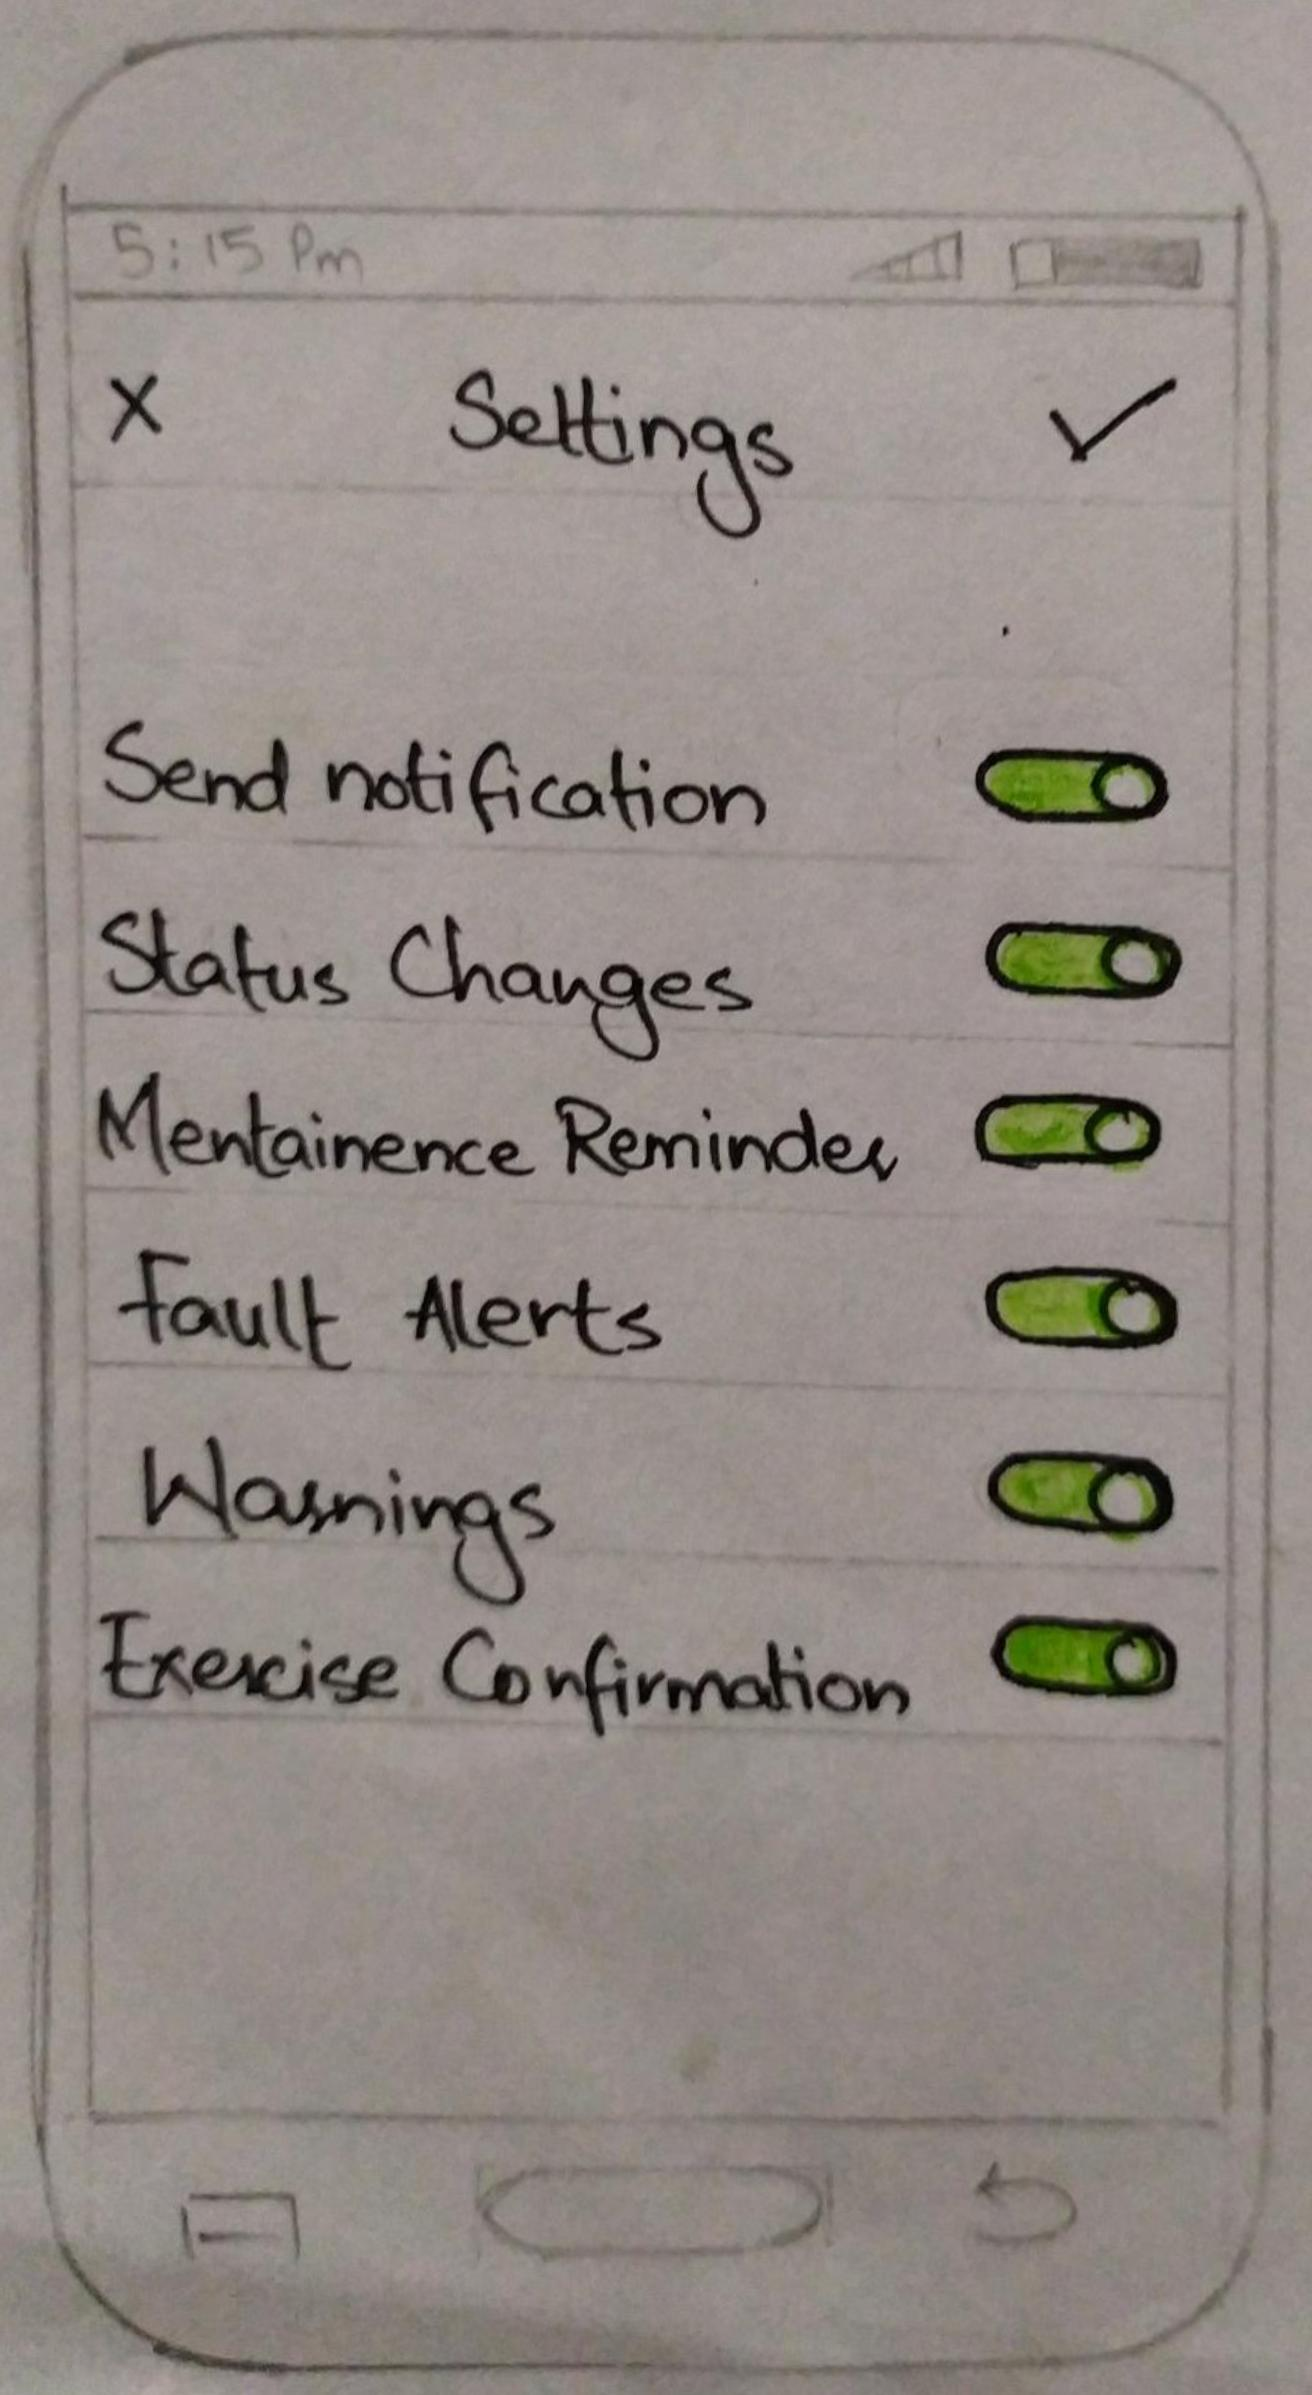 5:15 Pm
X Settings ✓
Send notification
Status Changes
Mentainence Reminder
Fault Alerts
Warnings
Exercise Confirmation